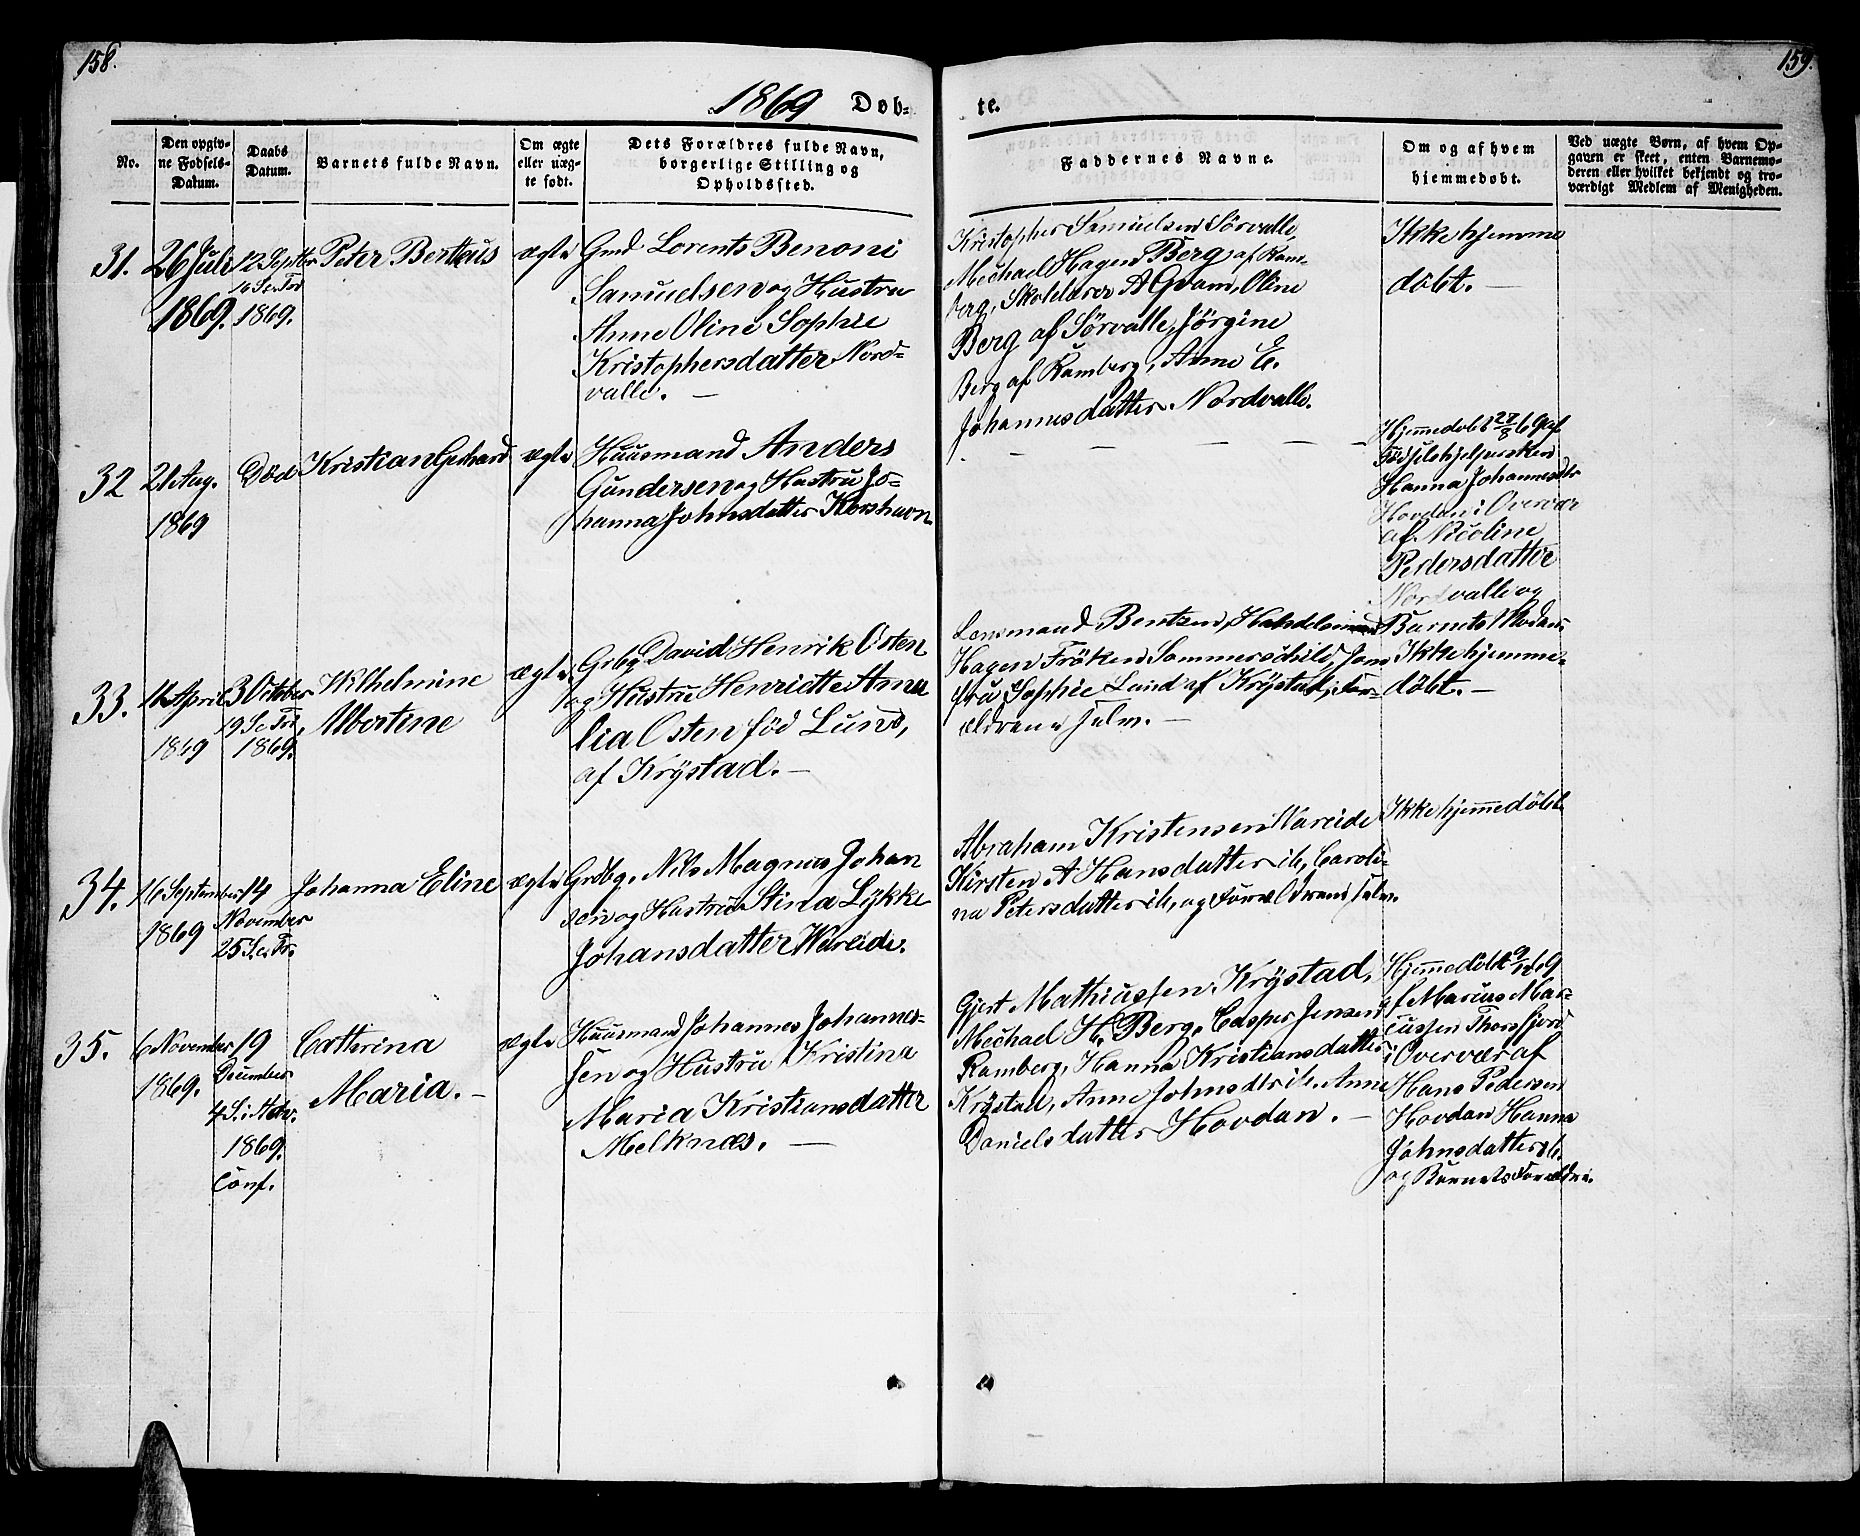 158.
159.
1869 Døb-
te.
No.
Den opgiv-
ne Fødsels-
Datum.
Daabs
Datum.
Barnets fulde Navn.
Om ægte
eller uæg-
te født.
Dets Forældres fulde Navn,
borgerlige Stilling og
Opholdssted.
Faddernes Navne.
Om og af hvem
hjemmedøbt.
Ved uægte Børn, af hvem Op-
gaven er skeet, enten Barnemo-
deren eller hvilket bekjendt og tro-
værdigt Medlem af Menigheden.
31.
26 Juli
1869.
12 Septbr
16 S.e.Tr.
1869.
Peter Berteus
ægte
Gmd Lorents Benoni
Samuelsen og Hustru
Anne Oline Sophie
Kristophersdatter Nord-
valle. —
Kristopher Samuelsen Sørvalle,
Mechael Hagen Berg af Ram-
berg, Skolelærer A Qvam, Oline
Berg af Sørvalle, Jörgine
Berg af Ramberg, Anne E.
Johannesdatter Nordvalle.
Ikke hjemme
döbt. —
32
21 Aug.
1869
Död
Kristian Gerhard
ægte
Huusmand Anders
Gundersen og Hustru Jo-
hanna Johnsdatter Korshavn
Hjemedöbt 28/8 69 af
Födselshjelpersken
Hanna Johannesdtr
Hovdan i Overvær
af Nicoline
Pedersdatter
Nordvalle og
Barnets Moder.
33.
April
1869
3 October
19 S.e.Tr.
1869.
Wilhelmine
Albertine
ægte
Grbg David Henrik Osten
og Hustru Henriette Ama
lia Osten föd Lund,
af Krÿstad. —
Lensmand Bentzen, Handelsmand
Hagen Fröken Sommerschild, Jom
fru Sophie Lund af Krÿstad, For-
ældrene selv. —
Ikke hjemme-
döbt. —
34.
16 September
1869
14
November
25 S.e.Tr.
Johanna Eline
ægte
Grdbg. Nils Magnus Johan
sen og Hustru Stina Lÿkke
Johansdatter Wareide.
Abraham Kristensen Wareide
Kirsten A Hansdatter ib, Caroli-
na Petersdatter ib, og Forældrene selv.
Ikke hjemedöbt
35.
6 November
1869.
19
December
4 S.i Adv.
1869.
Conf.
Cathrina
Maria. —
ægte
Huusmand Johannes Johannes-
sen og Hustru Kristina
Maria Kristiansdatter
Melknæs. —
Gjert Mathiussen Krÿstad,
Mechael H. Berg, Casper Jensen
Ramberg, Hanna Kristiansdatter
Krÿstad, Anne Johnsdtr ib, Anne
Danielsdatter Hovdan. —
Hjemedöbt 9/12 69
af Marius Mar-
cussen Thorsfjord
i Overvær af
Hans Pedersen
Hovdan Hanna
Johnsdatter ib.
og Barnets Forældre.